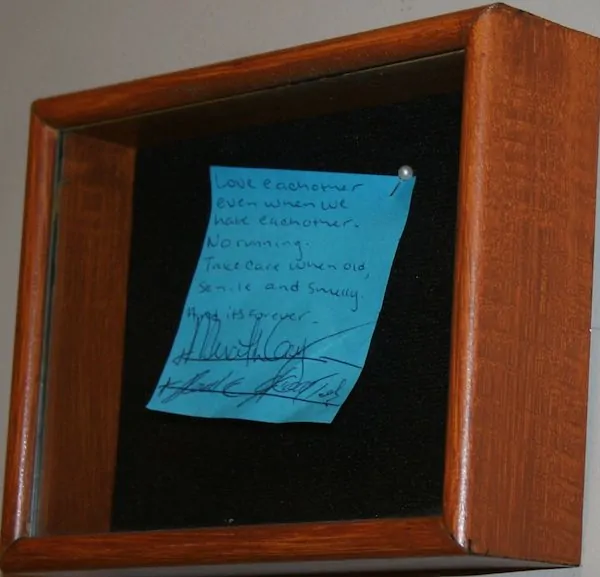 Love eachother
even when we
hate eachother.
No running.
Take care when old,
senile and smelly.
And its forever.